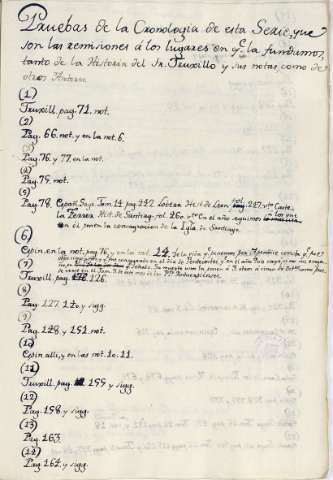 Pruebas de la Cronologia de esta Serie, que
son las remisiones á los lugares en q.e la fundamos,
tanto de la Historia del Sr. Truxillo y sus notas, como de
otros Autores.
(1)
Truxill. pag. 71. not.
(2)
Pag. 66. not. y en la not. 6.
(3)
Pag. 76. y 77. en la not.
(4)
Pag. 79. not.
(5)
Pag 78. Españ. Sag. Tom. 14 pag 242. Lobera Hist. de Leon fol. 247. vto. Caste
la Ferrer Hist. de Santiag. fol. 460 vto. Con el año seguimos a los que
en el ponen la consagracion de la Igl.a de Santiago.
(6)
Espin. en la not. pag 76 y en la not. 24.
(7)
Truxill. pag. 126.
(8)
Pag. 127. 120. y sigg.
(9)
Pag. 148 y 151. not.
(10)
Espin. alli, y en las not. 10. 11.
(11)
Truxill. pag. 155 y sigg.
(12)
Pag. 158. y sigg.
(13)
Pag. 163.
(14)
Pag. 164. y sigg.